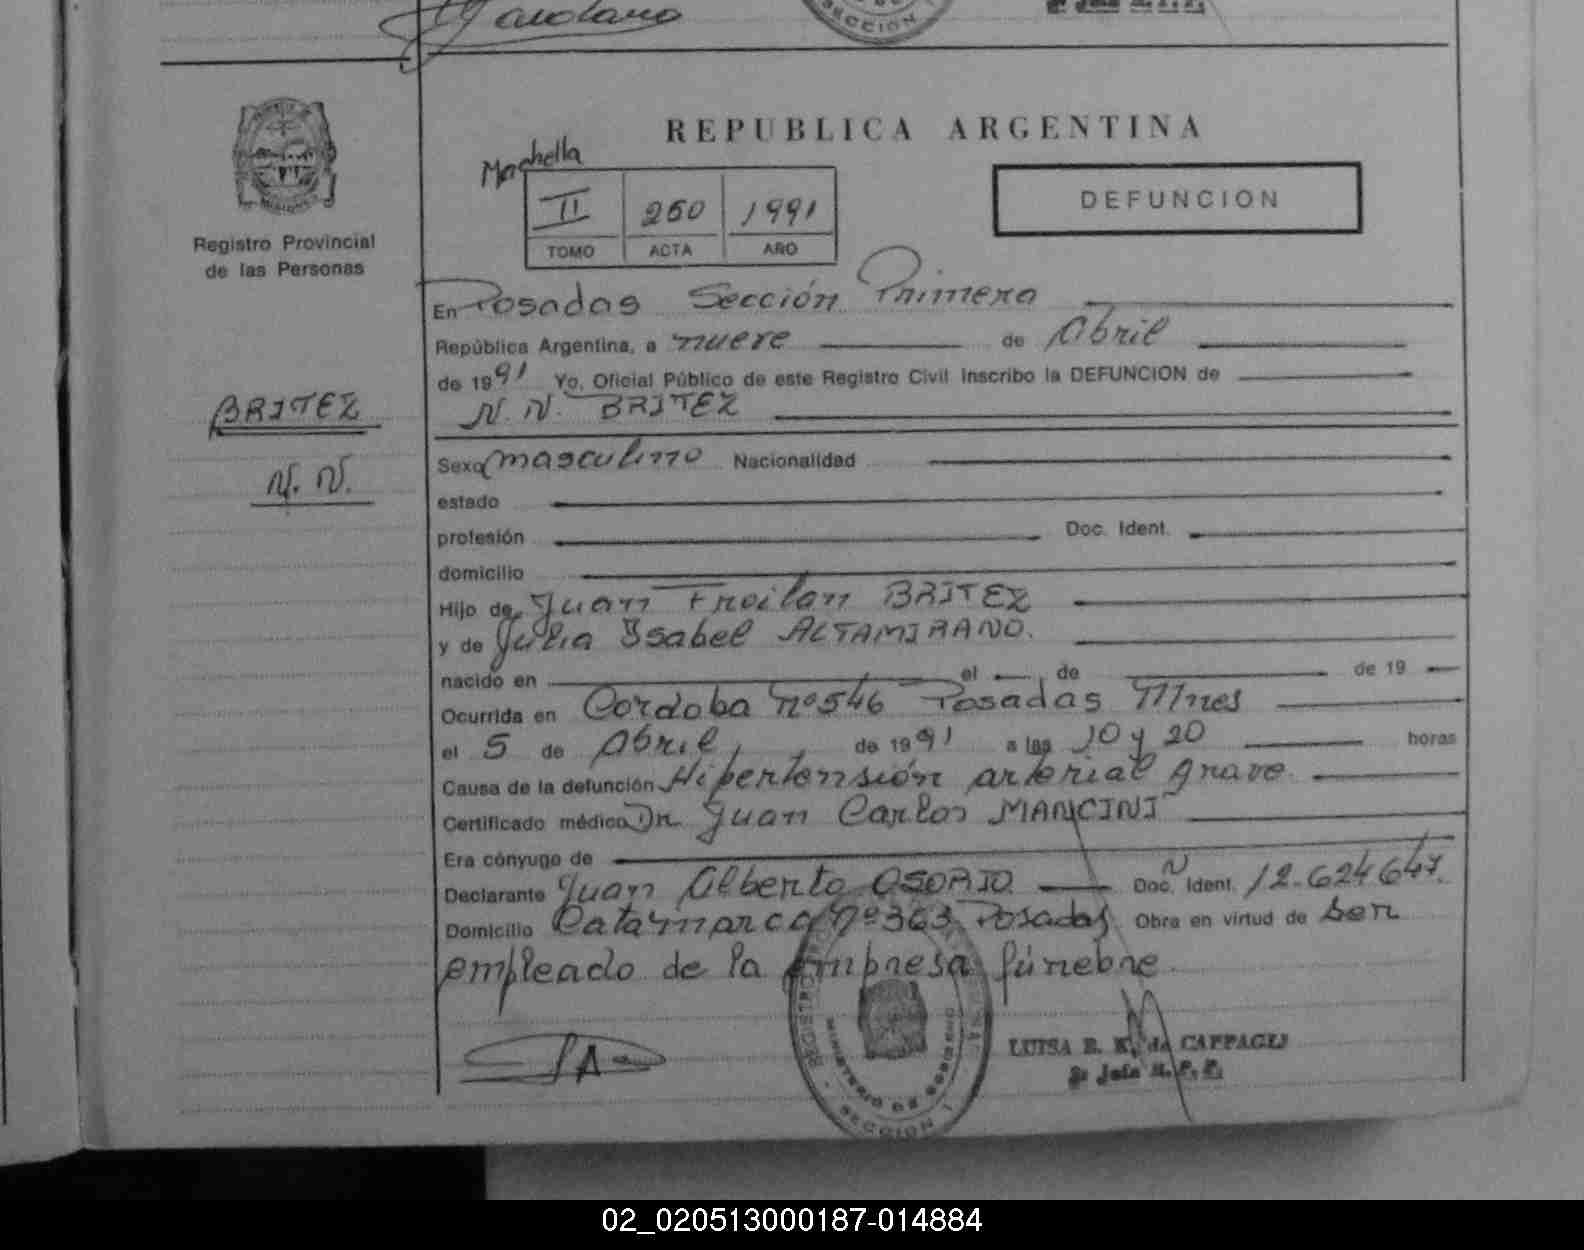 REPUBLICA ARGENTINA
DEFUNCION
II 250 1991
TOMO ACTA AÑO
Registro Provincial
de las Personas
BRITEZ
N. N.
En Posadas Sección Primera
República Argentina, a nueve de Abril
de 1991 Yo, Oficial Público de este Registro Civil inscribo la DEFUNCION de
N. N. BRITEZ
Sexo masculino Nacionalidad
estado
profesión Doc. Ident.
domicilio
Hijo de Juan Froilan BRITEZ
y de Julia Ysabel ALTAMIRANO.
nacido en el de de 19
Ocurrida en Cordoba Nº 546 Posadas Mnes
el 5 de Abril de 1991 a las 10 y 20 horas
Causa de la defunción Hipertensión arterial grave
Certificado médico Dr. Juan Carlos MANCINI
Era cónyuge de
Declarante Juan Alberto OSORIO Doc. Ident. 12.624647.
Domicilio Catamarca Nº 363 Posadas Obra en virtud de ser
empleado de la empresa fúnebre
MINISTERIO DE GOBIERNO
SECCION 1
LUISA E. K. de CAPPAGLI
02_020513000187-014884